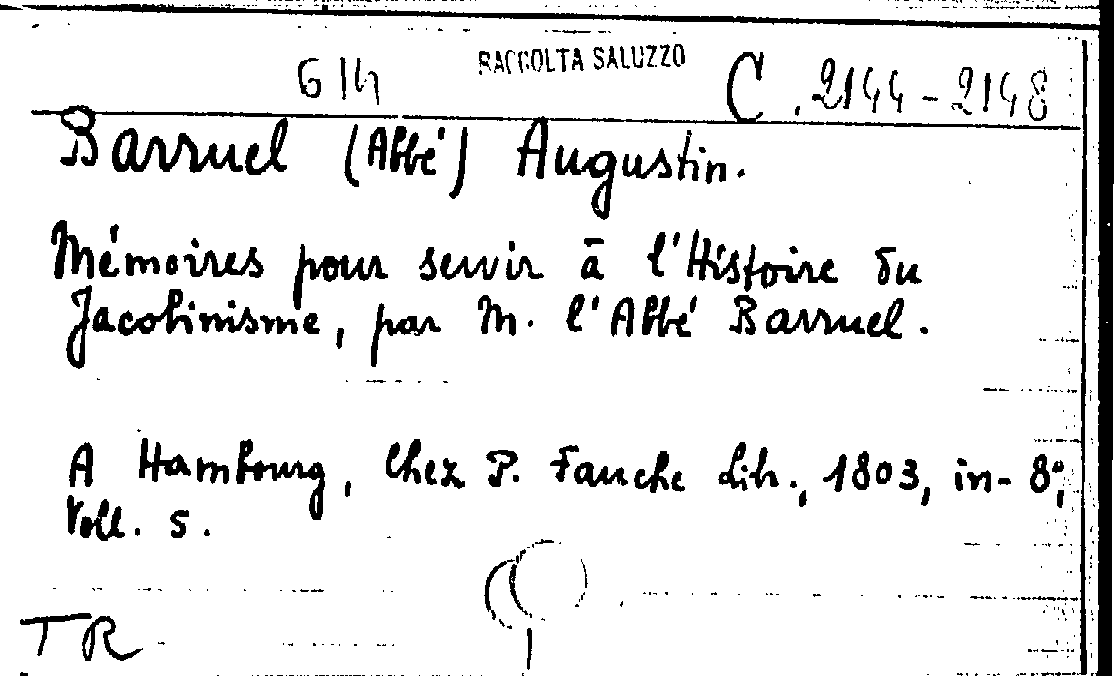 G 14 RACCOLTA SALUZZO C. 2144-2148
Barruel (Abbé) Augustin.
Mémoires pour servir à l'Histoire du
Jacobinisme, par M. l'Abbé Barruel.
A Hambourg, Chez P. Fauche Lib., 1803, in-8°,
Voll. 5.
TR